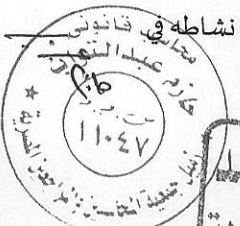 نشاطه في
محاسب قانوني
حازم عبدالتواب
س.م.م
١١٠٤٧
زميل جمعية المحاسبين والمراجعين المصرية